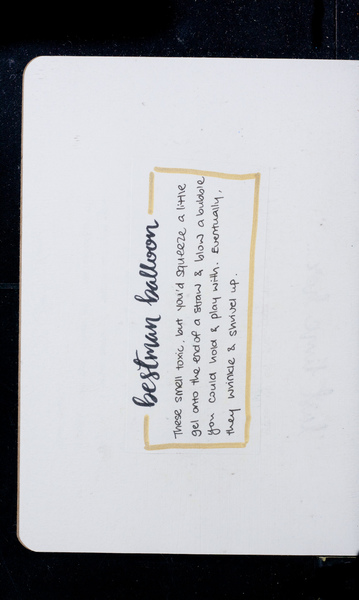 bestman balloon
These smell toxic, but you'd squeeze a little
gel onto the end of a straw & blow a bubble
you could hold & play with. Eventually,
they wrinkle & shrivel up.